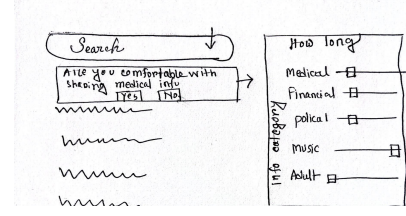 Search
Are you comfortable with
sharing medical info
Yes No
How long
Medical
Financial
polical
music
Adult
info